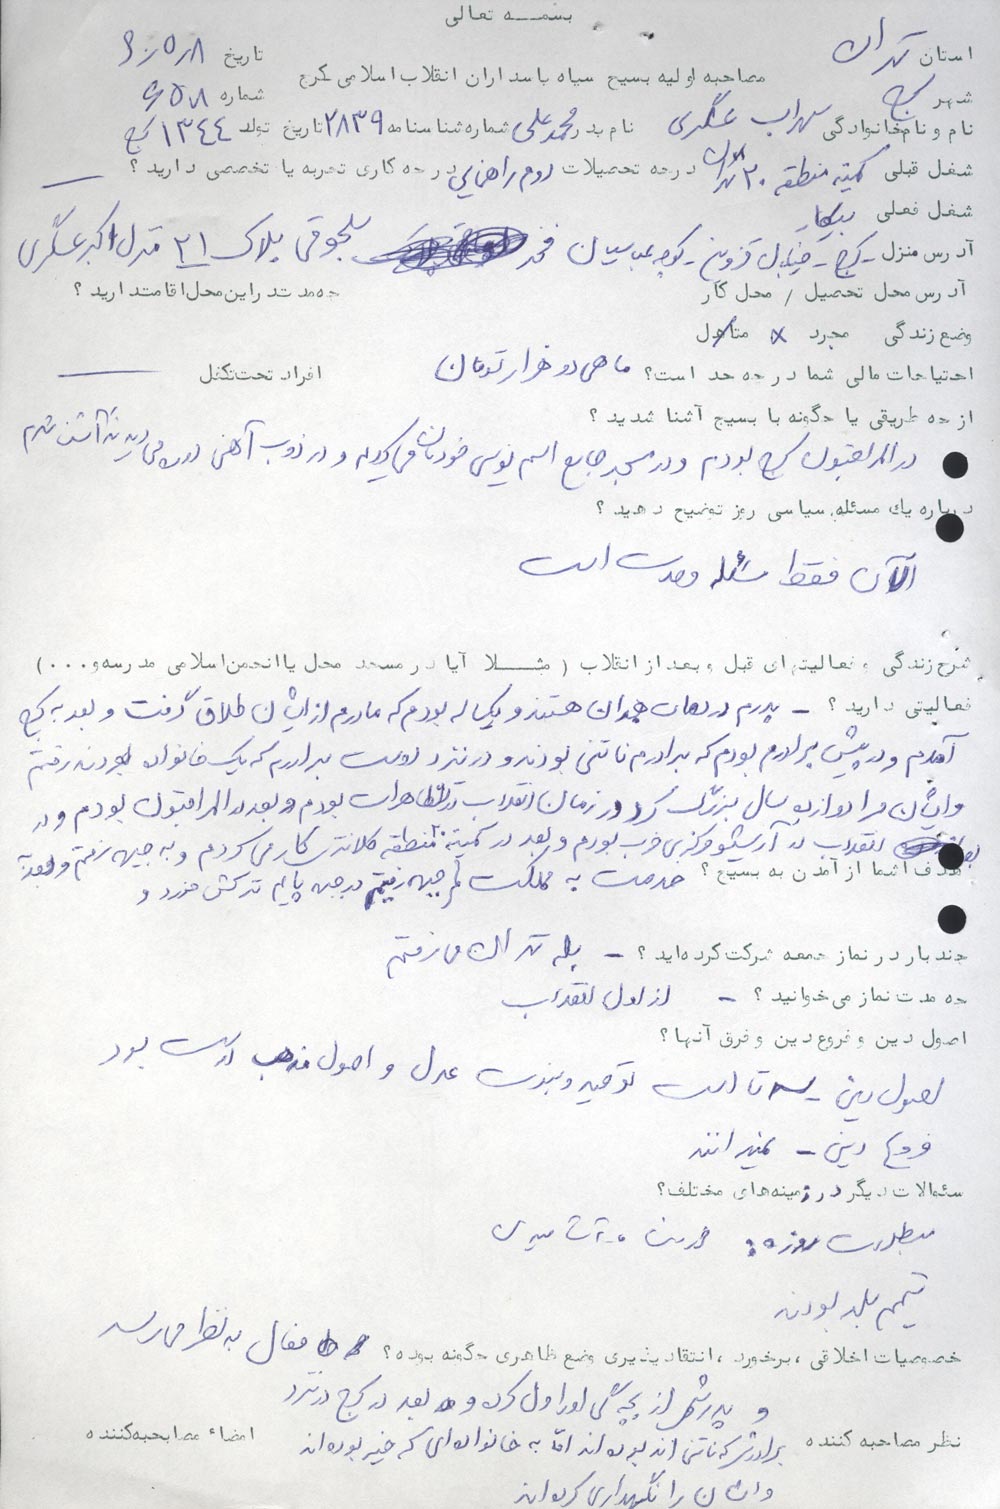 بسمه تعالی
استان تهران
تاریخ ۶۰/۵/۸
مصاحبه اولیه بسیج سپاه پاسداران انقلاب اسلامی کرج
شهر کرج
شماره ۶۵۰۸
نام و نام خانوادگی سهراب عسگری نام پدر محمدعلی شماره شناسنامه ۲۸۳۹ تاریخ تولد ۱۳۴۴ کرج
شغل قبلی کمیته منطقه ۲۰ تهران درجه تحصیلات دوم راهنمایی در چه کاری تجربه یا تخصصی دارید؟ —
شغل فعلی بیکار
آدرس منزل - کرج - خیابان قزوین - کوچه عباسیان فخر سلجوقی پلاک ۲۱ منزل اکبر عسگری
آدرس محل تحصیل / محل کار چه مدت در این محل اقامت دارید؟
وضع زندگی مجرد x متاهل
احتیاجات مالی شما در چه حد است؟ ماهی دو هزار تومان افراد تحت تکفل —
از چه طریقی یا چگونه با بسیج آشنا شدید؟
در کرج بودم و در مسجد جامع اسم نویسی خودتان می‌کردم و در ذوب آهن دوره می‌دیدند آشنا شدم
درباره یک مسئله سیاسی روز توضیح دهید؟
الآن فقط مسئله وحدت است
شرح زندگی و فعالیتهای قبل و بعد از انقلاب (مثلا آیا در مسجد محل یا انجمن اسلامی مدرسه و ...)
فعالیتی دارید؟ - پدرم در همدان هستند و یکساله بودم که مادرم از ایشان طلاق گرفت و بعد به کرج
آمدم و در پیش برادرم بودم که برادرم ناتنی بودند و در نزد دوست برادرم که یک خانواده بودند رفتم
و ایشان مرا دوازده سال بزرگ کرد در زمان انقلاب در تظاهرات بودم و بعد در بودم و در
انقلاب در آرشیو مرکزی حزب بودم و بعد در کمیته منطقه ۲۰ کلانتری کار می‌کردم و به جبهه رفتم و بعد
هدف شما از آمدن به بسیج؟ خدمت به مملکت جبهه رفتیم در جبهه پایم ترکش خورد و
چند بار در نماز جمعه شرکت کرده‌اید؟ - بله تهران می‌رفتم
چه مدت نماز می‌خوانید؟ - از اول انقلاب
اصول دین و فروع دین و فرق آنها؟
اصول دین سه تا است توحید و نبوت عدل و اصول مذهب درست بود
فروع دین - نمیدانند
سئوالات دیگر در زمینه‌های مختلف؟
مبطلات روزه: خوردن - آشامیدن
تیمم بلد بودند
خصوصیات اخلاقی، برخورد، انتقادپذیری وضع ظاهری چگونه بوده؟ فعال به نظر می‌رسد
و پدرش از بچگی او را ول کرده و بعد در کرج در نزد
نظر مصاحبه کننده برادرش که ناتنی اند بوده‌اند اما به خانواده‌ای که خیر بوده‌اند امضاء مصاحبه‌کننده
و ایشان را نگهداری کرده‌اند